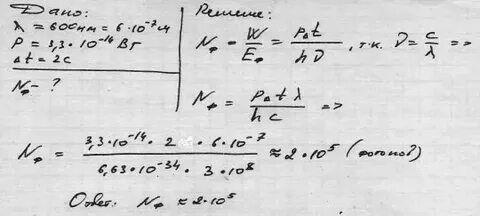 Дано:
λ = 600нм = 6·10⁻⁷м
P = 3,3·10⁻¹⁴Вт
Δt = 2с
Nф - ?
Решение:
Nф = W/Eф = PΔt/hν , т.к. ν = c/λ =>
Nф = PΔtλ/hc =>
Nф = 3,3·10⁻¹⁴·2·6·10⁻⁷/6,63·10⁻³⁴·3·10⁸ ≈ 2·10⁵ (фотонов)
Ответ: Nф ≈ 2·10⁵